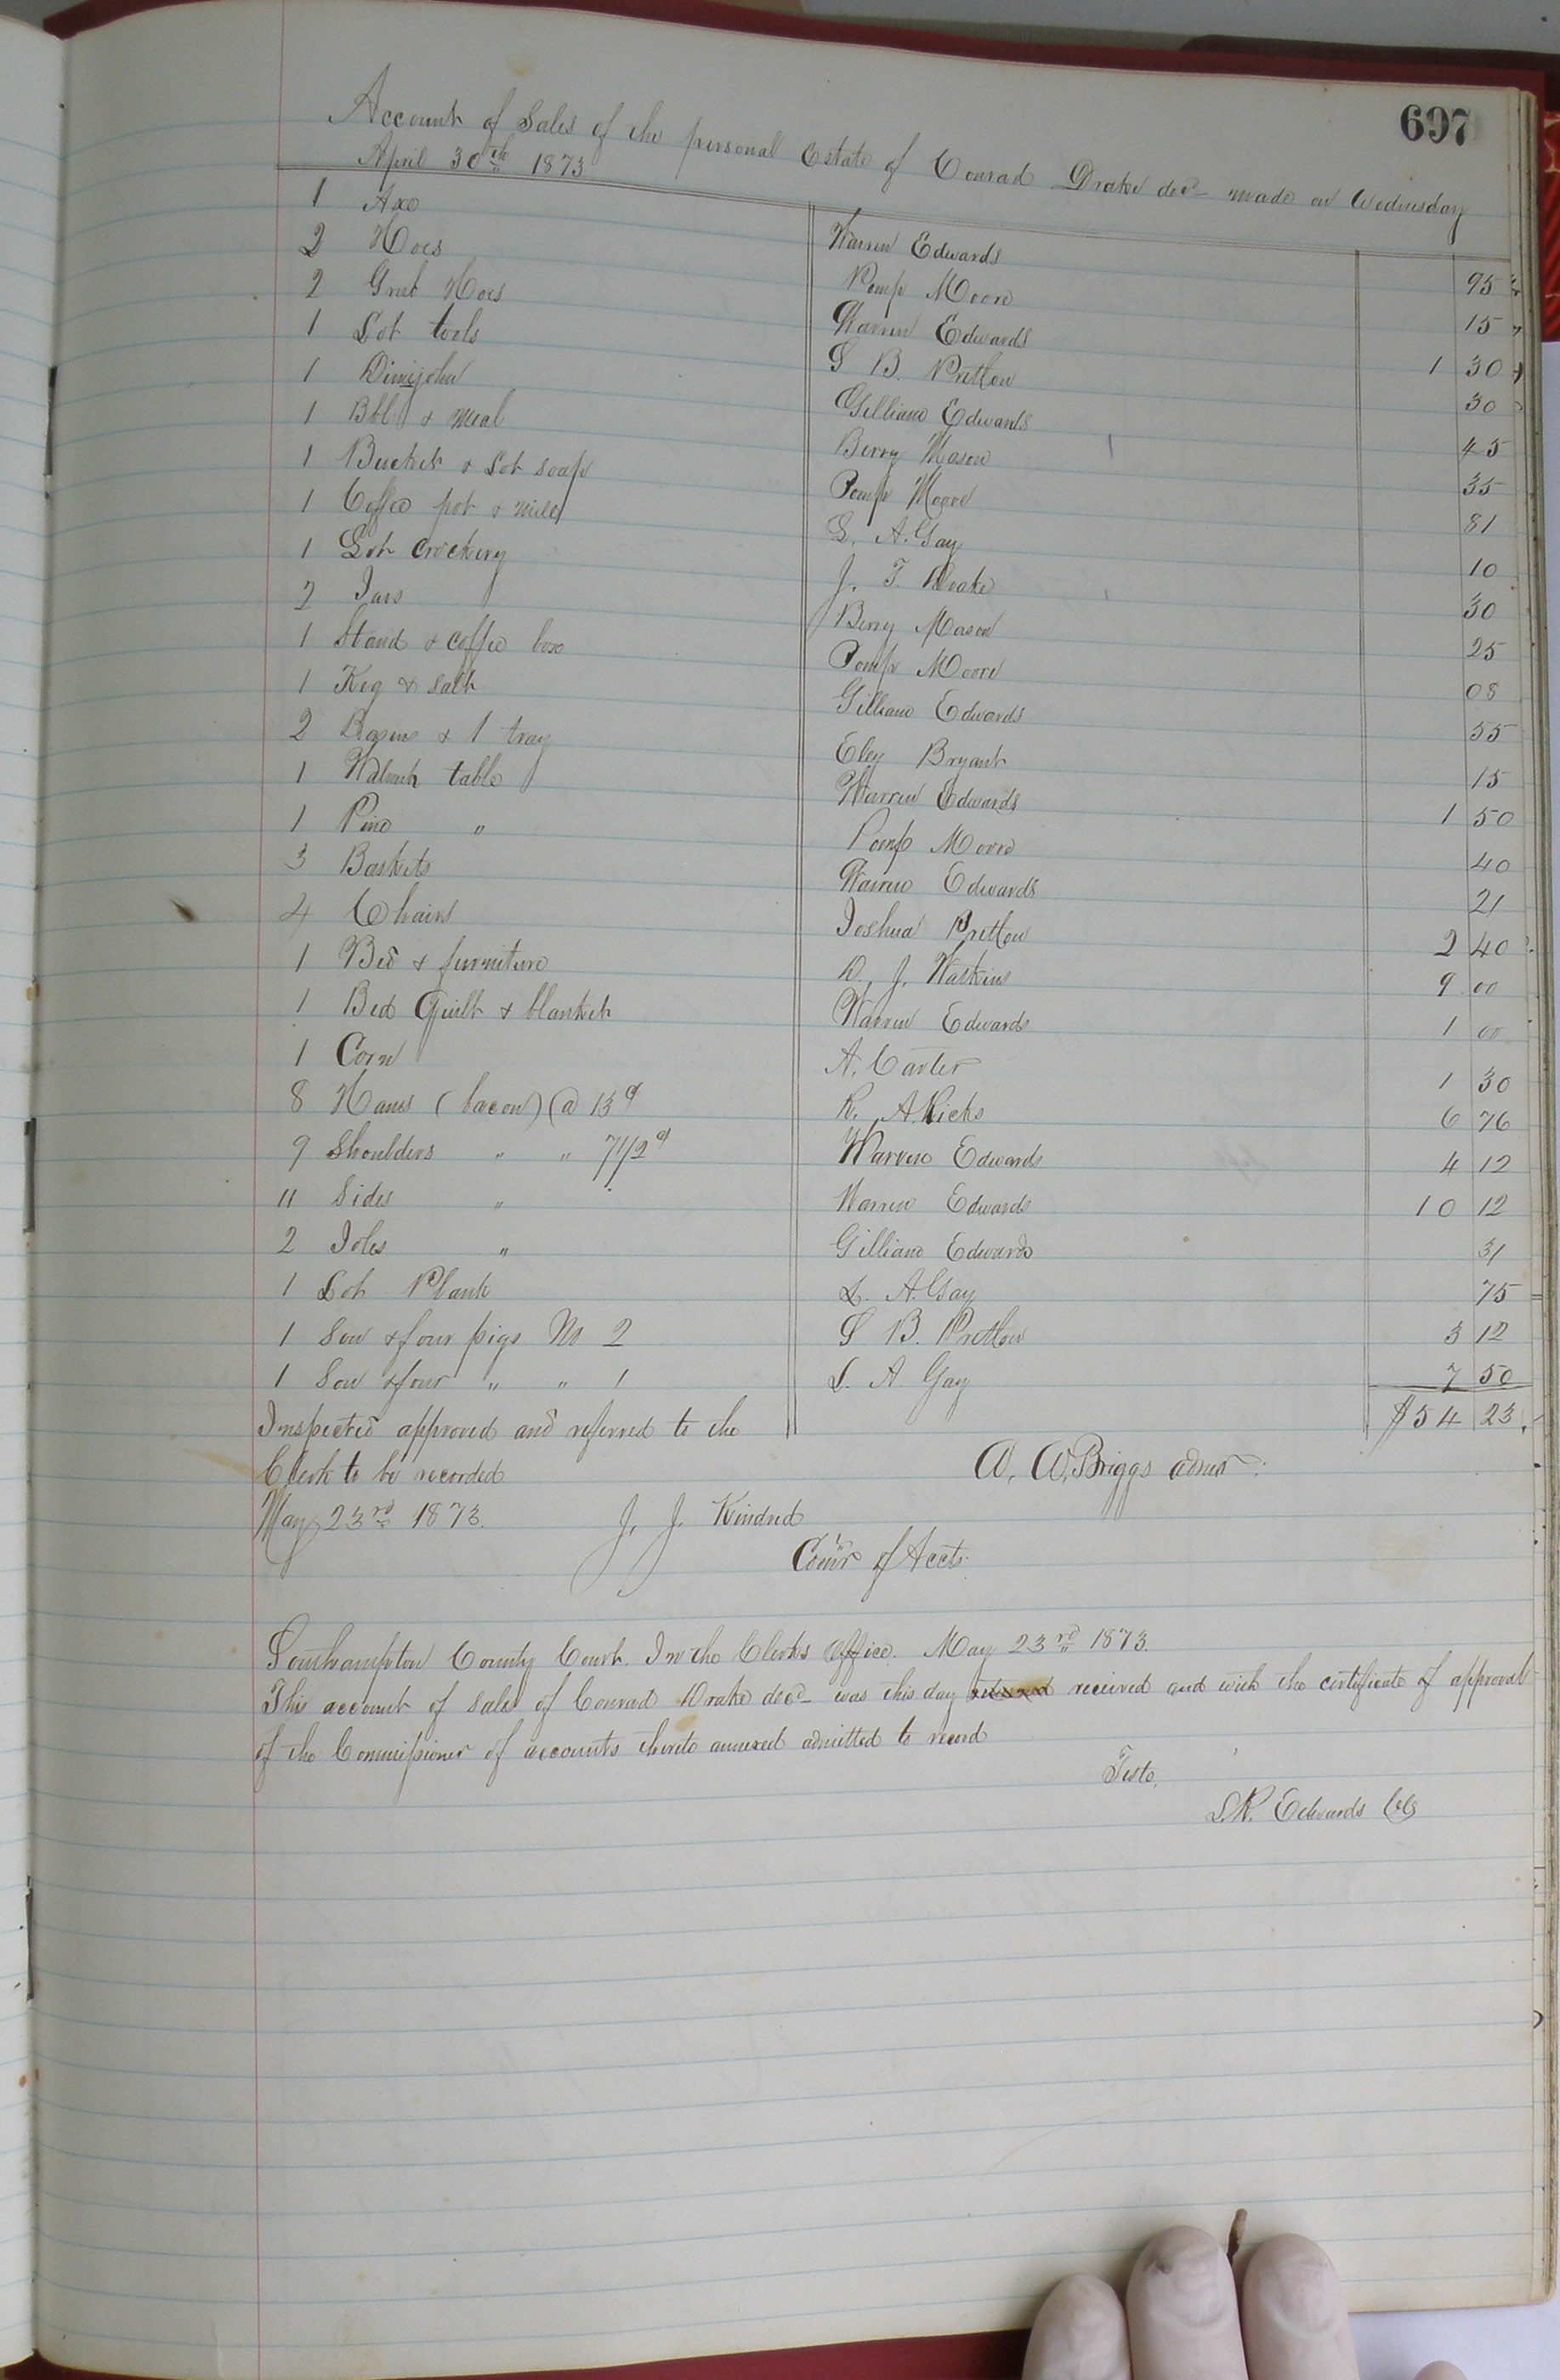 697
Account of Sales of the personal Estate of Conrad Drake decd made on Wednesday
April 30th 1873
1 Axe Warren Edwards 95
2 Hoes Pomp Moore 15
2 Grub Hoes Warren Edwards 1 30
1 Lot tools S B. Pretlow 30
1 Dimijohn Gilliam Edwards 45
1 Bbl & meal Berry Mason 35
1 Bucket & Lot soap Pomp Moore 81
1 Coffee pot & mill L. A. Gay 10
1 Lot Crockery J. T. Drake 30
2 Jars Berry Mason 25
1 Stand & coffee box Pomp Moore 08
1 Keg & salt Gilliam Edwards 55
2 Basins & 1 tray Eley Bryant 15
1 Walnut table Warren Edwards 1 50
1 Pine " Pomp Moore 40
3 Baskets Warren Edwards 21
4 Chairs Joshua Pretlow 2 40
1 Bed & furniture D. J. Waskins 9 00
1 Bed Quilt & blanket Warren Edwards 1 00
1 Corn A. Carter 1 30
8 Hams (bacon) @ 13 c R. A. Ricks 6 76
9 Shoulders " " 7 1/2 c Warren Edwards 4 12
11 Sides " Warren Edwards 10 12
2 Joles " Gilliam Edwards 31
1 Lot Plank L. A. Gay 75
1 Sow & four pigs No 2 S B. Pretlow 3 12
1 Sow & four " " 1 L. A Gay 7 50
$54 23
Inspected approved and referred to the
Clerk to be recorded W. W. Briggs admr
May 23rd 1873. J. J. Kindred
Comr of Accts.
Southampton County Court. In the Clerks Office. May 23rd 1873.
This account of sales of Conrad Drake decd was this day received and with the certificate of approval
of the Commissioner of accounts thereto annexed admitted to record
Teste,
L.R. Edwards Clk